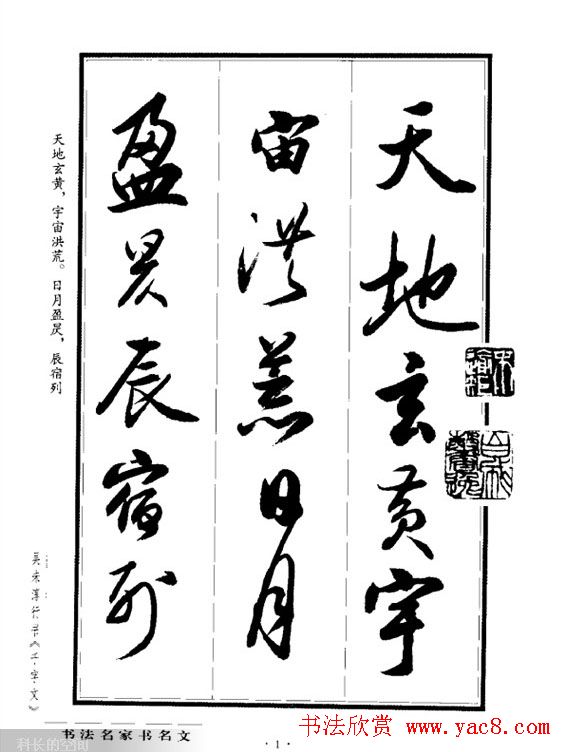 天地玄黄宇
宙洪荒日月
盈昃辰宿列
天地玄黄，宇宙洪荒。日月盈昃，辰宿列
吴未淳行书《千字文》
书法名家书名文
·1·
科长的空间
书法欣赏 www.yac8.com